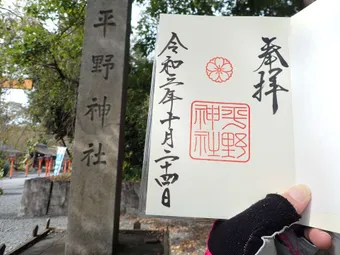 平野神社
奉拝
平野
神社
令和三年十月二十四日